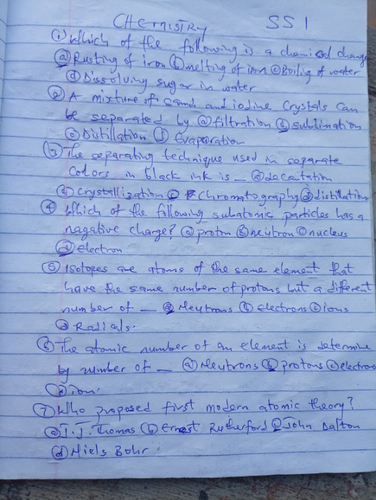 CHEMISTRY SS 1
① Which of the following is a chemical change
ⓐ Rusting of iron ⓑ melting of iron ⓒ Boiling of water
ⓓ Dissolving sugar in water
② A mixture of sand and iodine crystals can
be separated by ⓐ filtration ⓑ sublimation
ⓒ Distillation ⓓ Evaporation
③ The separating technique used in separate
colors in black ink is ... ⓐ decantation
ⓑ Crystallization ⓒ Chromatography ⓓ distillation
④ Which of the following subatomic particles has a
nagative charge? ⓐ proton ⓑ neutron ⓒ nucleus
ⓓ electron
⑤ Isotopes are atoms of the same element that
have the same number of protons but a different
number of — ⓐ Neutrons ⓑ electrons ⓒ ions
ⓓ Radicals.
⑥ The atomic number of an element is determine
by number of — ⓐ Neutrons ⓑ protons ⓒ electrons
ⓓ ion.
⑦ Who proposed first modern atomic theory?
ⓐ J.J. Thomas ⓑ Ernest Rutherford ⓒ John Dalton
ⓓ Niels Bohr